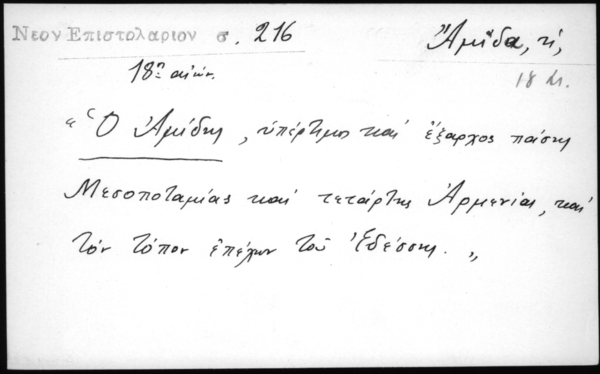 Νεον Επιστολαριον σ. 216
Ἄμιδα, ἡ,
18η αἰών.
18 αι.
"Ὁ Ἀμίδης, ὑπέρτιμος καὶ ἔξαρχος πάσης
Μεσοποταμίας καὶ τετάρτης Ἀρμενίας, καὶ
τὸν τόπον ἐπέχων τοῦ Ἐδέσσης."